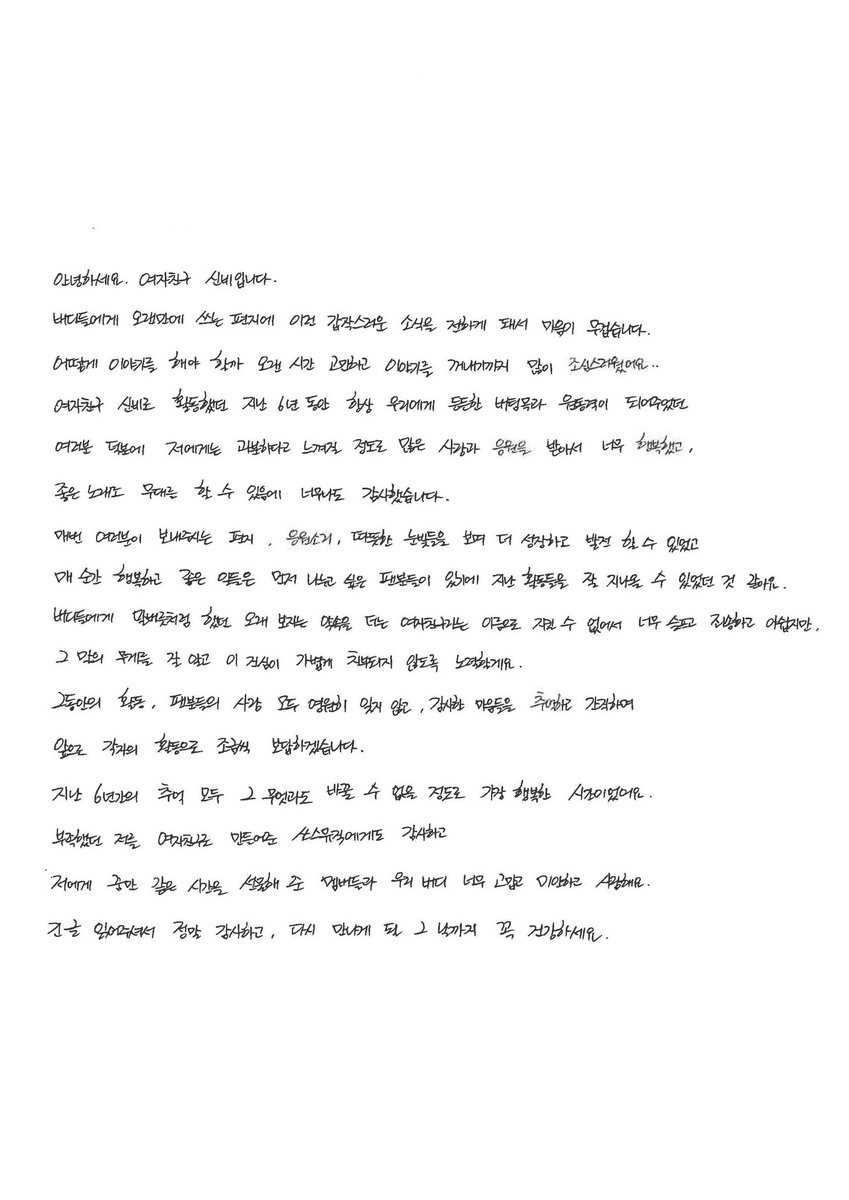 안녕하세요. 여자친구 신비입니다.
버디들에게 오랜만에 쓰는 편지에 이런 갑작스러운 소식을 전하게 돼서 마음이 무겁습니다.
어떻게 이야기를 해야 할까 오랜 시간 고민하고 이야기를 꺼내기까지 많이 조심스러웠어요..
여자친구 신비로 활동했던 지난 6년 동안 항상 우리에게 든든한 버팀목과 원동력이 되어주었던
여러분 덕분에 저에게는 과분하다고 느껴질 정도로 많은 사랑과 응원을 받아서 너무 행복했고,
좋은 노래로 무대를 할 수 있음에 너무나도 감사했습니다.
매번 여러분이 보내주시는 편지, 응원소리, 따뜻한 눈빛들을 보며 더 성장하고 발전 할 수 있었고
매 순간 행복하고 좋은 것들은 먼저 나누고 싶은 팬분들이 있기에 지난 활동들을 잘 지나올 수 있었던 것 같아요.
버디들에게 말버릇처럼 했던 오래 보자는 약속을 더는 여자친구라는 이름으로 지킬 수 없어서 너무 슬프고 죄송하고 아쉽지만,
그 말의 무게를 잘 알고 이 진심이 가볍게 치부되지 않도록 노력할게요.
그동안의 활동, 팬분들의 사랑 모두 영원히 잊지 않고, 감사한 마음들을 추억하고 간직하며
앞으로 각자의 활동으로 조금씩 보답하겠습니다.
지난 6년간의 추억 모두 그 무엇과도 바꿀 수 없을 정도로 가장 행복한 시간이었어요.
부족했던 저를 여자친구로 만들어준 쏘스뮤직에게도 감사하고
저에게 정말 값진 시간을 선물해 준 멤버들과 우리 버디 너무 고맙고 미안하고 사랑해요.
긴 글 읽어주셔서 정말 감사하고, 다시 만나게 될 그 날까지 꼭 건강하세요.